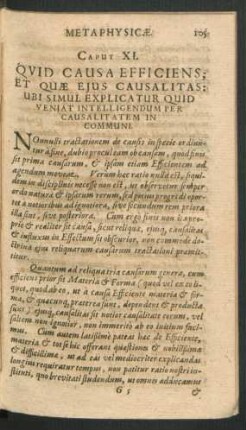 METAPHYSICÆ. 105
CAPUT XI.
QVID CAUSA EFFICIENS;
ET QUÆ EJUS CAUSALITAS:
UBI SIMUL EXPLICATUR QUID
VENIAT INTELLIGENDUM PER
CAUSALITATEM IN
COMMUNI.
NOnnulli tractationem de causis
a fine, dubio procul eam ob causam, quod finis
sit prima causarum, & ipsam etiam Efficientem ad
agendum moveat. Verum hæc ratio nulla est, siquidem
in disciplinis necesse non est, ut observetur semper
ordo naturæ & ipsarum rerum, sed
a notioribus ad ignotiora, sive secundum rem priora
illa sint, sive posteriora. Cum ergo finis non
prie & realiter sit causa, sicut reliquæ, ejusq; causalitas
& influxus in Effectum sit obscurior, non commode
ctrina ejus reliquarum causarum tractationi præmit-
titur.
Quantum ad reliqua tria causarum genera, cum
efficiens prior sit Materia & Forma
quod ab eo, ut à causa Efficiente materia & for-
ma, & quacunq; præterea sunt, dependent & producta
sunt, ejusq; causalitas sit notior causalitate rerum, vel
saltem non ignotior, non immerito ab eo initium faci-
mus. Cum autem latissime pateat hæc de Efficiente,
materia & tot se hic offerant quæstiones & nobilissima
& difficilima, ut ad eas vel mediocriter explicandas
longiori requiratur tempus, non patitur ratio nostri in-
stituti, quo brevitati studendum, ut omnes adducamus
G 5 &